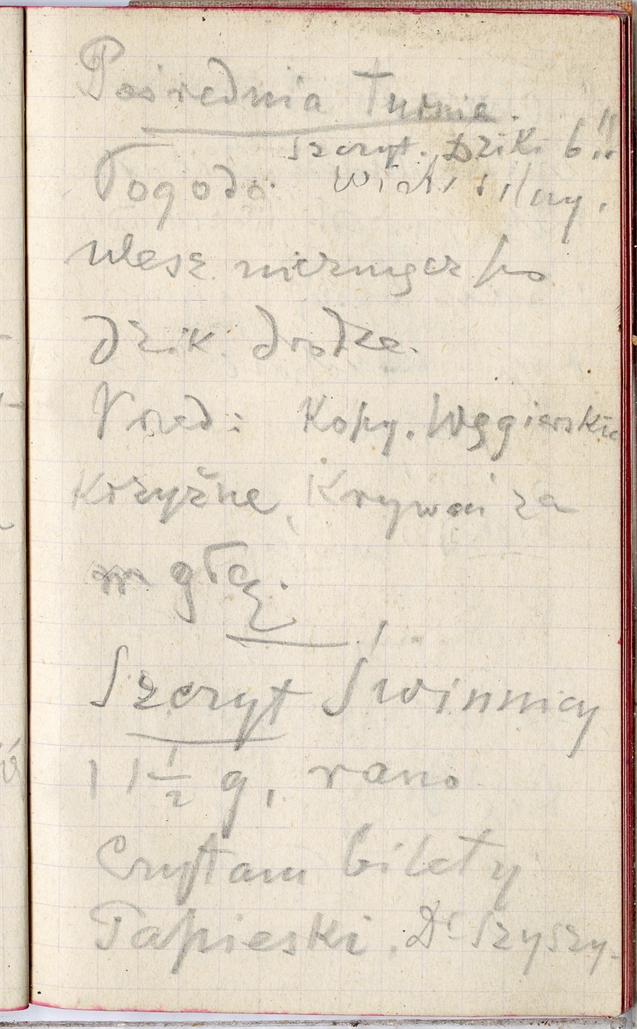 Pośrednia Turnia.
Szczyt. Dziki b. !!
Pogoda. Wiatr silny.
po
dzik. drodze.
Przed: Kopy. Węgierskie
Krzyżne, Krywań za
mgłą.
Szczyt Świnnicy
11 1/2 g. rano
Czytam bilety
Papieski. Dr Szyszy-